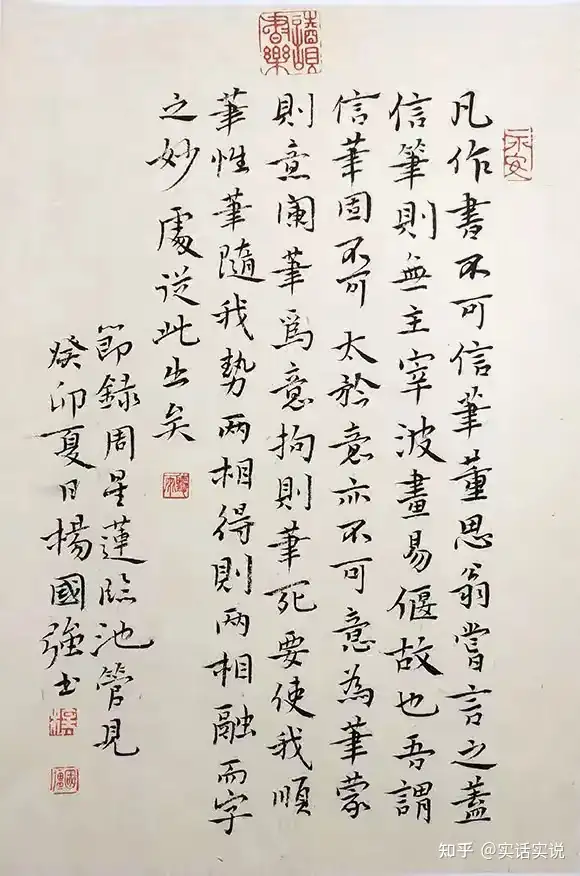 凡作書不可信筆董思翁嘗言之蓋
信筆則無主宰波畫易偃故也吾謂
信筆固不可太矜意亦不可意為筆蒙
則意闌筆爲意拘則筆死要使我順
筆性筆隨我勢两相得則两相融而字
之妙處從此出矣
節録周星蓮臨池管見
癸卯夏日楊國強书
永安
知乎 @实话实说